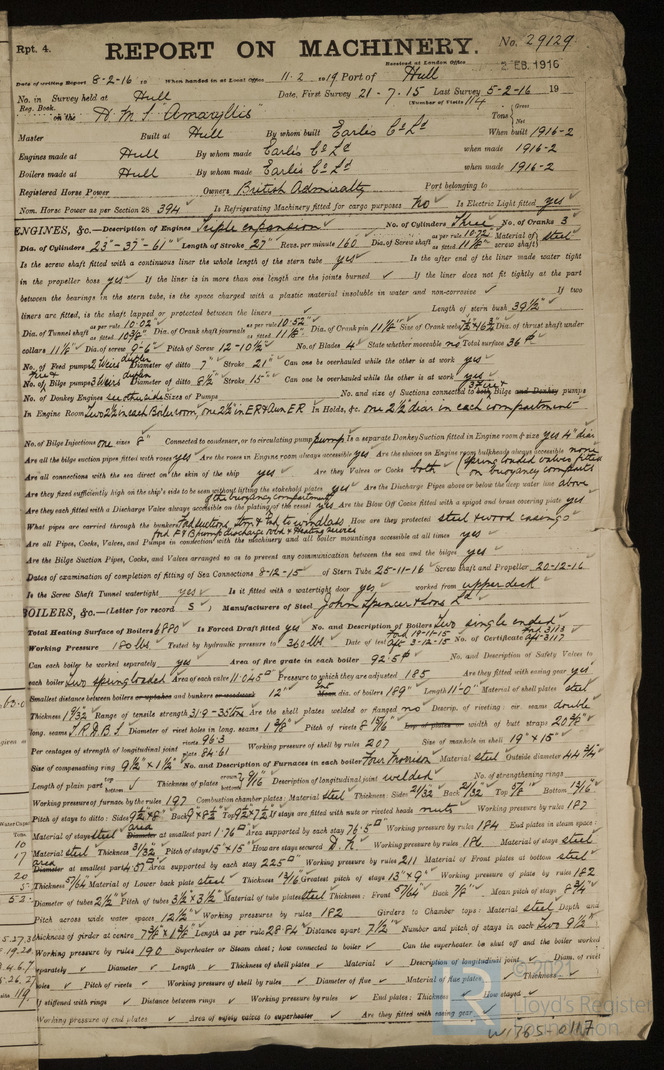 Rpt. 4.
REPORT ON MACHINERY.
No. 29129
Received at London Office
2 FEB. 1916
Date of writing Report 8-2-16 19 When handed in at Local Office 11-2 1919 Port of Hull
No. in Survey held at Hull Date, First Survey 21-7-15 Last Survey 5-2-16 19
Reg. Book. (Number of Visits 114
on the H.M.S. "Amaryllis" Tons Gross Net
Master Built at Hull By whom built Earle's Co Ld When built 1916-2
Engines made at Hull By whom made Earle's Co Ld when made 1916-2
Boilers made at Hull By whom made Earle's Co Ld when made 1916-2
Registered Horse Power Owners British Admiralty Port belonging to
Nom. Horse Power as per Section 28 394 Is Refrigerating Machinery fitted for cargo purposes No Is Electric Light fitted yes
ENGINES, &c.—Description of Engines Triple expansion No. of Cylinders Three No. of Cranks 3
Dia. of Cylinders 23"-37"-61" Length of Stroke 27" Revs. per minute 160 Dia. of Screw shaft as per rule 10.72" as fitted 11⅛" Material of screw shaft steel
Is the screw shaft fitted with a continuous liner the whole length of the stern tube yes Is the after end of the liner made water tight
in the propeller boss yes If the liner is in more than one length are the joints burned If the liner does not fit tightly at the part
between the bearings in the stern tube, is the space charged with a plastic material insoluble in water and non-corrosive If two
liners are fitted, is the shaft lapped or protected between the liners Length of stern bush 39½"
Dia. of Tunnel shaft as per rule 10.02" as fitted 10⅜" Dia. of Crank shaft journals as per rule 10.52" as fitted 11⅛" Dia. of Crank pin 11⅛" Size of Crank webs Dia. of thrust shaft under
collars 11⅛" Dia. of screw 9-6 Pitch of Screw 12-10½" No. of Blades 4 State whether moveable no Total surface 36
No. of Feed pumps 2 Weirs duplex Diameter of ditto 7" Stroke 21" Can one be overhauled while the other is at work yes
No. of Bilge pumps 3 Weirs duplex Diameter of ditto 8½" Stroke 15" Can one be overhauled while the other is at work yes
No. of Donkey Engines see other side Sizes of Pumps No. and size of Suctions connected to both Bilge and Donkey pumps
In Engine Room Two 2½" in each Boiler room, one 2½" in ER & Aux ER In Holds, &c. one 2½" dia in each compartment
No. of Bilge Injections one sizes 8" Connected to condenser, or to circulating pump pump Is a separate Donkey Suction fitted in Engine room & size yes 4" dia
Are all the bilge suction pipes fitted with roses yes Are the roses in Engine room always accessible yes Are the sluices on Engine room bulkheads always accessible none
Are all connections with the sea direct on the skin of the ship yes Are they Valves or Cocks both (spring loaded valves fitted on buoyancy compartmts
Are they fixed sufficiently high on the ship's side to be seen without lifting the stokehold plates yes Are the Discharge Pipes above or below the deep water line above
Are they each fitted with a Discharge Valve always accessible on the plating of the vessel yes Are the Blow Off Cocks fitted with a spigot and brass covering plate yes
What pipes are carried through the bunkers How are they protected steel & wood casings
Are all Pipes, Cocks, Valves, and Pumps in connection with the machinery and all boiler mountings accessible at all times yes
Are the Bilge Suction Pipes, Cocks, and Valves arranged so as to prevent any communication between the sea and the bilges yes
Dates of examination of completion of fitting of Sea Connections 8-12-15 of Stern Tube 25-11-16 Screw shaft and Propeller 20-12-16
Is the Screw Shaft Tunnel watertight yes Is it fitted with a watertight door yes worked from upper deck
BOILERS, &c.—(Letter for record S) Manufacturers of Steel John Spencer & Sons Ld
Total Heating Surface of Boilers 6880 Is Forced Draft fitted yes No. and Description of Boilers Two single ended
Working Pressure 180 lbs. Tested by hydraulic pressure to 360 lbs Date of test Ford 19-11-15 Aft 3-12-15 No. of Certificate Ford 3113 Aft 3117
Can each boiler be worked separately yes Area of fire grate in each boiler 92.5 No. and Description of Safety Valves to
each boiler Two spring loaded Area of each valve 11.045 Pressure to which they are adjusted 185 Are they fitted with easing gear yes
Smallest distance between boilers or uptakes and bunkers or woodwork 12" dia. of boilers 189" Length 11'-0" Material of shell plates steel
Thickness 1 9/32 Range of tensile strength 31.9-35 ton Are the shell plates welded or flanged no Descrip. of riveting: cir. seams double
long. seams T.R.D.B.S. Diameter of rivet holes in long. seams 1⅜" Pitch of rivets 8 15/16" Lap of plates or width of butt straps 20⅝"
Per centages of strength of longitudinal joint rivets 96.3 plate 84.61 Working pressure of shell by rules 207 Size of manhole in shell 19" x 15"
Size of compensating ring 9½" x 1½" No. and Description of Furnaces in each boiler Four Morison Material steel Outside diameter 44¾"
Length of plain part top bottom Thickness of plates crown bottom 9/16" Description of longitudinal joint welded No. of strengthening rings
Working pressure of furnace by the rules 197 Combustion chamber plates: Material steel Thickness: Sides 21/32 Back 21/32 Top ⅝" Bottom 13/16"
Pitch of stays to ditto: Sides 9½" x 8" Back 9" x 8½" Top 9½" x 7½" If stays are fitted with nuts or riveted heads nuts Working pressure by rules 187
Material of stays steel Diameter area at smallest part 1.76 Area supported by each stay 76.5 Working pressure by rules 184 End plates in steam space:
Material steel Thickness 1 3/32 Pitch of stays 15" x 15" How are stays secured D.N. Working pressure by rules 186 Material of stays steel
Diameter area at smallest part Area supported by each stay 225 Working pressure by rules 211 Material of Front plates at bottom steel
Thickness Material of Lower back plate steel Thickness 13/16 Greatest pitch of stays 13" x 9" Working pressure of plate by rules 182
Diameter of tubes 2½" Pitch of tubes 3½" x 3½" Material of tube plates steel Thickness: Front Back ⅞" Mean pitch of stays 8¾"
Pitch across wide water spaces 12½" Working pressures by rules 182 Girders to Chamber tops: Material steel Depth and
thickness of girder at centre Length as per rule 28.84 Distance apart 7½" Number and pitch of stays in each two 9½"
Working pressure by rules 190 Superheater or Steam chest; how connected to boiler Can the superheater be shut off and the boiler worked
separately Diameter Length Thickness of shell plates Material Description of longitudinal joint Diam. of rivet
holes Pitch of rivets Working pressure of shell by rules Diameter of flue Material of flue plates Thickness
If stiffened with rings Distance between rings Working pressure by rules End plates: Thickness How stayed
Working pressure of end plates Area of safety valves to superheater Are they fitted with easing gear
© 2021
LR
Lloyd's Register
Foundation
W1765-0117